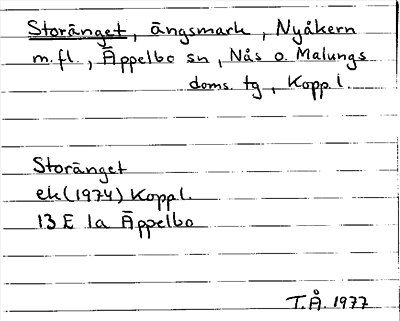 Storänget, ängsmark, Nyåkern
m.fl., Äppelbo sn, Nås o. Malungs
doms. tg, Kopp.l.
Storänget
ek (1974) Kopp.l.
13 E 1a Äppelbo
T.Å. 1977